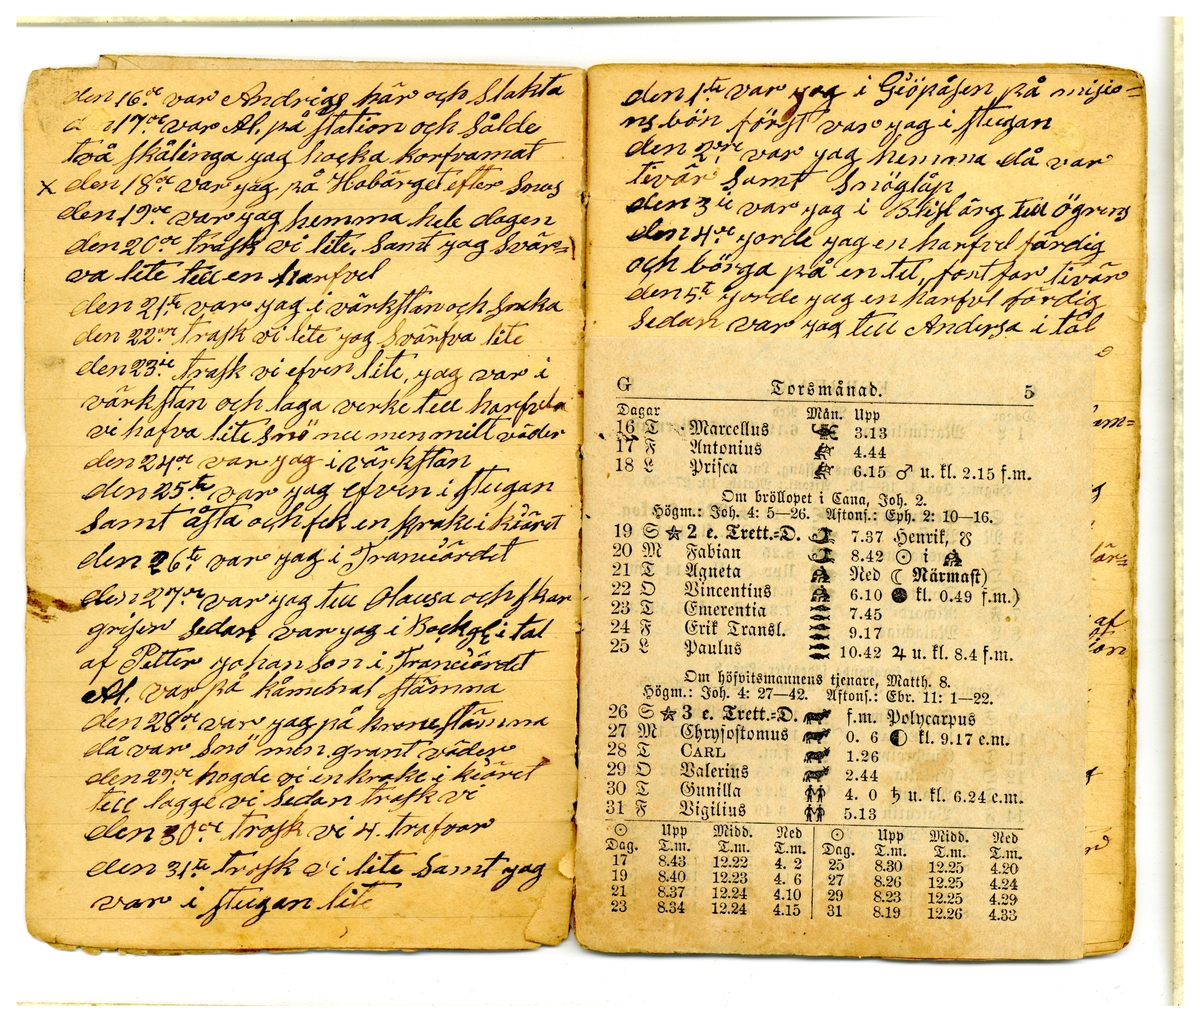 den 16de var Andrigs här och Slakta
den 17de var Al. på station och sålde
två skålinga yag hocka korfvamat
x den 18de var yag på Habärget efter Snus
den 19de var yag hemma hele dagen
den 20de trask vi lite. Samt yag Svär=
va lite till en harfvel
den 21te var yag i värkstan och Snika
den 22dre trask vi lite yag Svärfva lite
den 23ie trask vi efven lite, yag var i
värkstan och laga verke till harfvela
vi hafva lite Snö nu men milt väder
den 24de var yag i värkstan
den 25te var yag efven i stugan
Samt åsta och fck en krake i kiäret
den 26te var yag i Tranciärdet
den 27de var yag till Olausa och skar
grisen Sedan var yag i tal
af Petter yohanson i, Tranciärdet
Al. var på stämna
den 28de var yag på kronestämna
då var Snö men grant väder
den 29de hogde vi en krake i kiäret
till lagge vi Sedan trask vi
den 30de trask vi 4. trafvar
den 31te trask vi lite Samt yag
var i stugan lite
den 1te var yag i Giöpåsen på misio=
ns bön först var yag i stugan
den 2dre var yag hemma då var
tivär Samt Snöglåp
den 3ie var yag i till ögrens
den 4de yorde yag en harfvel färdig
och börga på en til, fost for tivär
den 5te yorde yag en harfvl färdig
Sedan var yag till Andersa i tål
G Torsmånad. 5
Dagar Mån. Upp
16 T Marcellus 3.13
17 F Antonius 4.44
18 L Prisca 6.15 ♂ u. kl. 2.15 f.m.
Om bröllopet i Cana, Joh. 2.
Högm.: Joh. 4: 5—26. Aftons.: Eph. 2: 10—16.
19 S ★ 2 e. Trett.=D. 7.37 Henrik, ☋
20 M Fabian 8.42 ☉
21 T Agneta Ned ☾ Närmast)
22 O Vincentius 6.10 ● kl. 0.49 f.m.)
23 T Emerentia 7.45
24 F Erik Transl. 9.17
25 L Paulus 10.42 ♃ u. kl. 8.4 f.m.
Om höfvitsmannens tjenare, Matth. 8.
Högm.: Joh. 4: 27—42. Aftons.: Ebr. 11: 1—22.
26 S ★ 3 e. Trett.=D. f.m. Polycarpus
27 M Chrysostomus 0. 6 ◐ kl. 9.17 e.m.
28 T CARL 1.26
29 O Valerius 2.44
30 T Gunilla 4. 0 ♄ u. kl. 6.24 e.m.
31 F Vigilius 5.13
☉ Upp Midd. Ned ☉ Upp Midd. Ned
Dag. T.m. T.m. T.m. Dag. T.m. T.m. T.m.
17 8.43 12.22 4. 2 25 8.30 12.25 4.20
19 8.40 12.23 4. 6 27 8.26 12.25 4.24
21 8.37 12.24 4.10 29 8.23 12.25 4.29
23 8.34 12.24 4.15 31 8.19 12.26 4.33